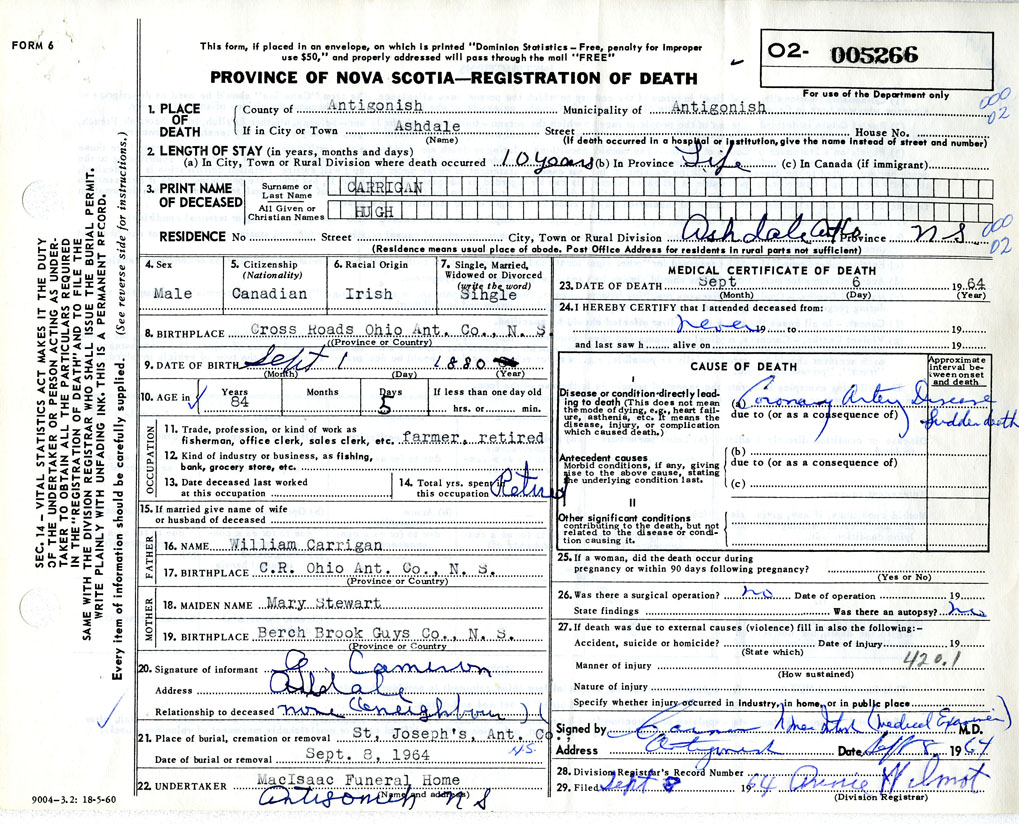 FORM 6
This form, if placed in an envelope, on which is printed "Dominion Statistics – Free, penalty for improper
use $50," and properly addressed will pass through the mail "FREE"
PROVINCE OF NOVA SCOTIA—REGISTRATION OF DEATH
O2- 005266
For use of the Department only
000
02
SEC. 14 – VITAL STATISTICS ACT MAKES IT THE DUTY
OF THE UNDERTAKER OR PERSON ACTING AS UNDER-
TAKER TO OBTAIN ALL THE PARTICULARS REQUIRED
IN THE "REGISTRATION OF DEATH" AND TO FILE THE
SAME WITH THE DIVISION REGISTRAR WHO SHALL ISSUE THE BURIAL PERMIT.
WRITE PLAINLY WITH UNFADING INK. THIS IS A PERMANENT RECORD.
Every item of information should be carefully supplied. (See reverse side for instructions.)
1. PLACE OF DEATH
County of Antigonish Municipality of Antigonish
If in City or Town Ashdale Street House No.
(Name) (If death occurred in a hospital or institution, give the name instead of street and number)
2. LENGTH OF STAY (in years, months and days)
(a) In City, Town or Rural Division where death occurred 10 years (b) In Province Life (c) In Canada (if immigrant)
3. PRINT NAME OF DECEASED
Surname or Last Name CARRIGAN
All Given or Christian Names HUGH
RESIDENCE No Street City, Town or Rural Division Ashdale Province N S
000
02
(Residence means usual place of abode. Post Office Address for residents in rural parts not sufficient)
4. Sex Male
5. Citizenship (Nationality) Canadian
6. Racial Origin Irish
7. Single, Married, Widowed or Divorced (write the word) Single
8. BIRTHPLACE Cross Roads Ohio Ant. Co., N. S.
(Province or Country)
9. DATE OF BIRTH Sept 1 1880
(Month) (Day) (Year)
10. AGE in Years 84 Months Days 5 If less than one day old hrs. or min.
OCCUPATION
11. Trade, profession, or kind of work as
fisherman, office clerk, sales clerk, etc. farmer, retired
12. Kind of industry or business, as fishing,
bank, grocery store, etc.
13. Date deceased last worked
at this occupation
14. Total yrs. spent in
this occupation Retired
15. If married give name of wife
or husband of deceased
FATHER
16. NAME William Carrigan
17. BIRTHPLACE C.R. Ohio Ant. Co., N. S.
(Province or Country)
MOTHER
18. MAIDEN NAME Mary Stewart
19. BIRTHPLACE Berch Brook Guys Co., N. S.
(Province or Country)
20. Signature of informant Cameron
Address Ashdale
Relationship to deceased none (neighbour)
21. Place of burial, cremation or removal St. Joseph's, Ant. Co.,
N.S.
Date of burial or removal Sept. 8, 1964
22. UNDERTAKER MacIsaac Funeral Home
(Name and address)
Antigonish N S
9004–3.2: 18-5-60
MEDICAL CERTIFICATE OF DEATH
23. DATE OF DEATH Sept 6 1964
(Month) (Day) (Year)
24. I HEREBY CERTIFY that I attended deceased from:
never 19 to 19
and last saw h alive on 19
CAUSE OF DEATH
Approximate interval between onset and death
I
Disease or condition directly leading to death (This does not mean the mode of dying, e.g., heart failure, asthenia, etc. It means the disease, injury, or complication which caused death.)
(a) Coronary Artery Disease
due to (or as a consequence of) Sudden death
Antecedent causes
Morbid conditions, if any, giving rise to the above cause, stating the underlying condition last.
(b)
due to (or as a consequence of)
(c)
II
Other significant conditions
contributing to the death, but not related to the disease or condition causing it.
25. If a woman, did the death occur during
pregnancy or within 90 days following pregnancy?
(Yes or No)
26. Was there a surgical operation? no Date of operation 19
State findings Was there an autopsy? no
27. If death was due to external causes (violence) fill in also the following:–
Accident, suicide or homicide? Date of injury 19
(State which)
Manner of injury 420.1
(How sustained)
Nature of injury
Specify whether injury occurred in Industry, in home, or in public place
Signed by (Medical Examiner) M.D.
Address Antigonish Date Sept 8 1964
28. Division Registrar's Record Number
29. Filed Sept 8 1964 Annie Wilmot
(Division Registrar)